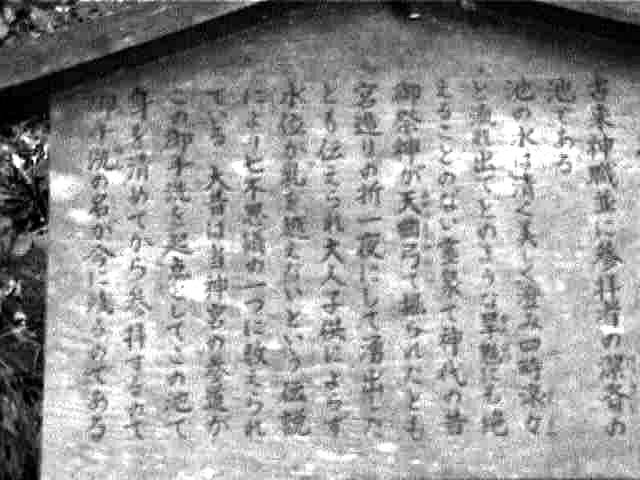 古来神職並に参拝者の潔斎の
池である
池の水は清く美しく澄み四時滾々
と流れ出てどのような旱魃にも絶
えることのない霊泉で神代の昔
御祭神が天曲弓で掘られたとも
宮造りの折一夜にして湧出した
とも伝えられ大人子供によらず
水位が乳を越えないという伝説
により七不思議の一つに数えられ
ている 大昔は当神宮の参道が
この御手洗を起点としてこの池で
身を清めてから参拝するので
御手洗の名が今に残るのである